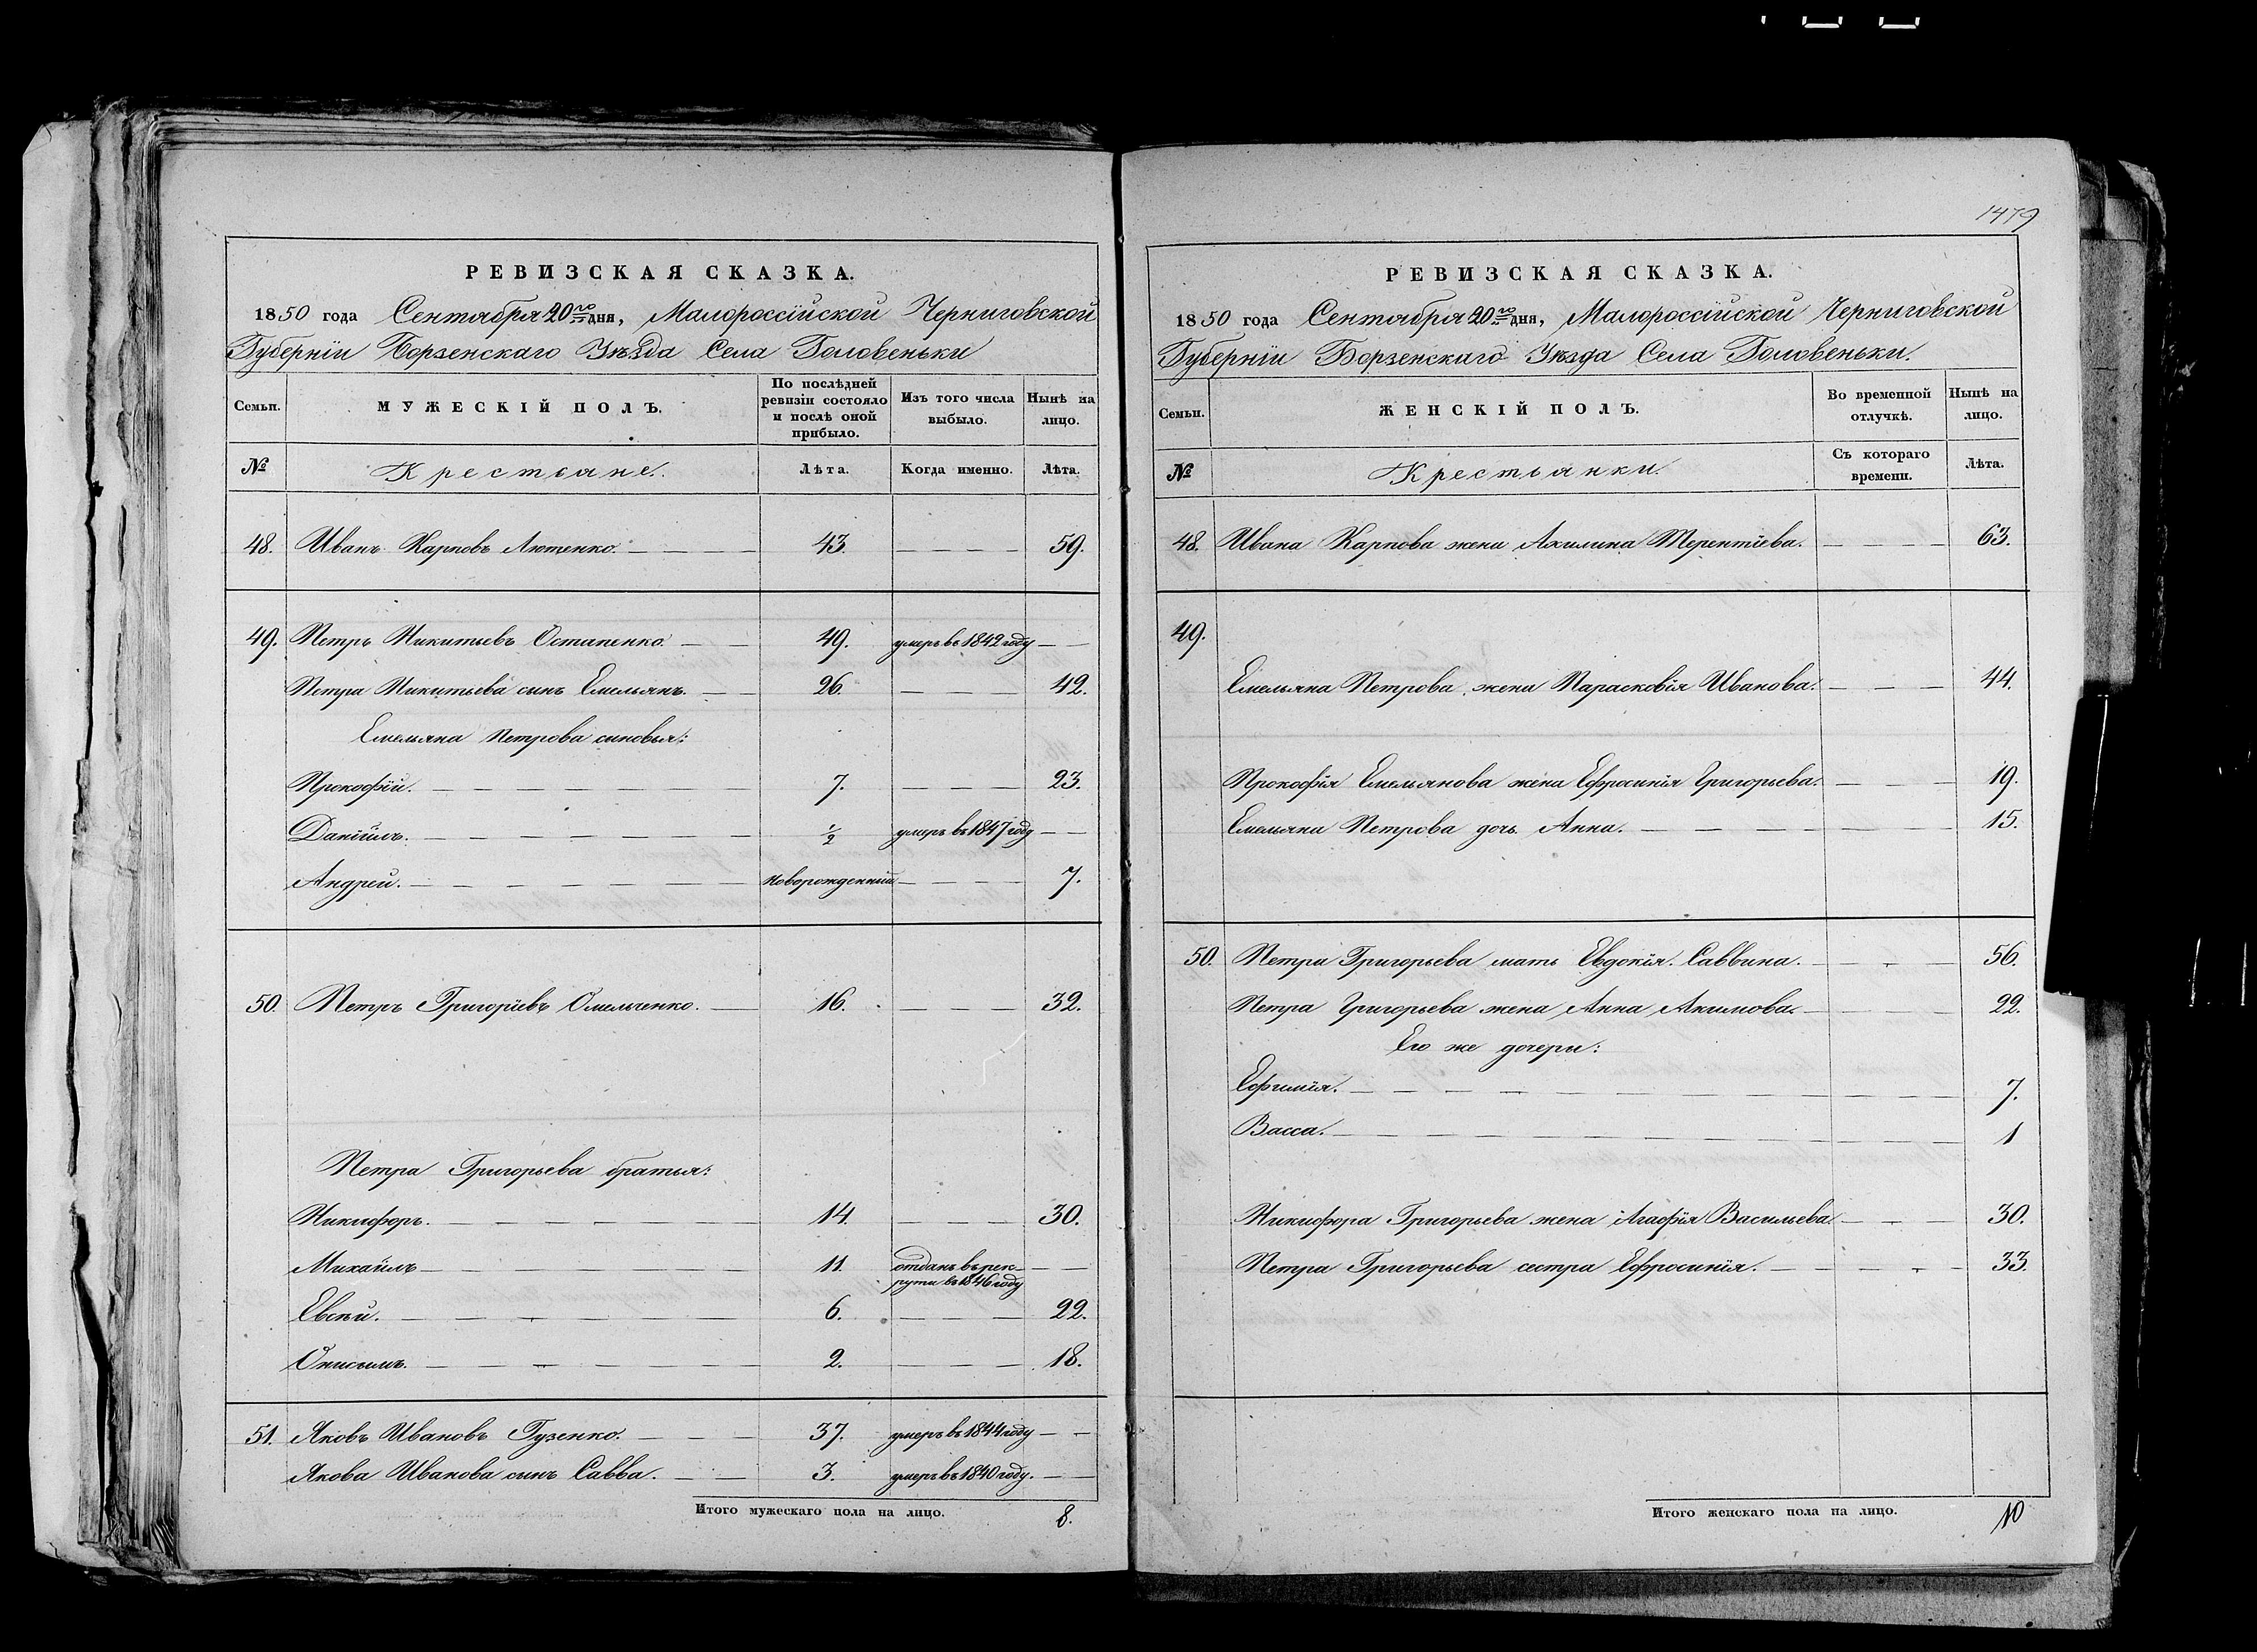 РЕВИЗСКАЯ СКАЗКА.
1850 года Сентября 20го дня, Малороссійской Черниговской
Губерніи Борзенскаго Уѣзда Села Головеньки
Семьи. МУЖЕСКІЙ ПОЛЪ. По послѣдней ревизіи состояло и послѣ оной прибыло. Изъ того числа выбыло. Нынѣ на лицо.
№ Крестьяне. Лѣта. Когда именно. Лѣта.
48. Иванъ Карповъ Лютенко. 43. 59.
49. Петръ Никитьевъ Остапенко. 49. умеръ въ 1842 году
Петра Никитьева сынъ Емельянъ. 26. 42.
Емельяна Петрова сыновья:
Прокофій. 7. 23.
Даніилъ. 1/2 умеръ въ 1847 году
Андрей. новорожденный 7.
50. Петръ Григоріевъ Омельченко. 16. 32.
Петра Григорьева братья:
Никифоръ. 14. 30.
Михаилъ 11. отданъ въ рек-
руты въ 1846 году
Евсѣй. 6. 22.
Онисимъ. 2. 18.
51. Яковъ Ивановъ Гузенко. 37. умеръ въ 1844 году
Якова Иванова сынъ Савва. 3. умеръ въ 1840 году.
Итого мужескаго пола на лицо. 8.
1479
РЕВИЗСКАЯ СКАЗКА.
1850 года Сентября 20го дня, Малороссійской Черниговской
Губерніи Борзенскаго Уѣзда Села Головеньки.
Семьи. ЖЕНСКІЙ ПОЛЪ. Во временной отлучкѣ. Нынѣ на лицо.
№ Крестьянки. Съ котораго времени. Лѣта.
48. Ивана Карпова жена Акилина Терентіева. 63.
49.
Емельяна Петрова жена Парасковія Иванова. 44.
Прокофія Емельянова жена Ефросинія Григорьева. 19.
Емельяна Петрова дочь Анна. 15.
50. Петра Григорьева мать Евдокія Саввина. 56.
Петра Григорьева жена Анна Акимова. 22.
Его же дочери:
Ефимія. 7.
Васса. 1
Никифора Григорьева жена Агафія Васильева. 30.
Петра Григорьева сестра Ефросинія. 33.
Итого женскаго пола на лицо. 10